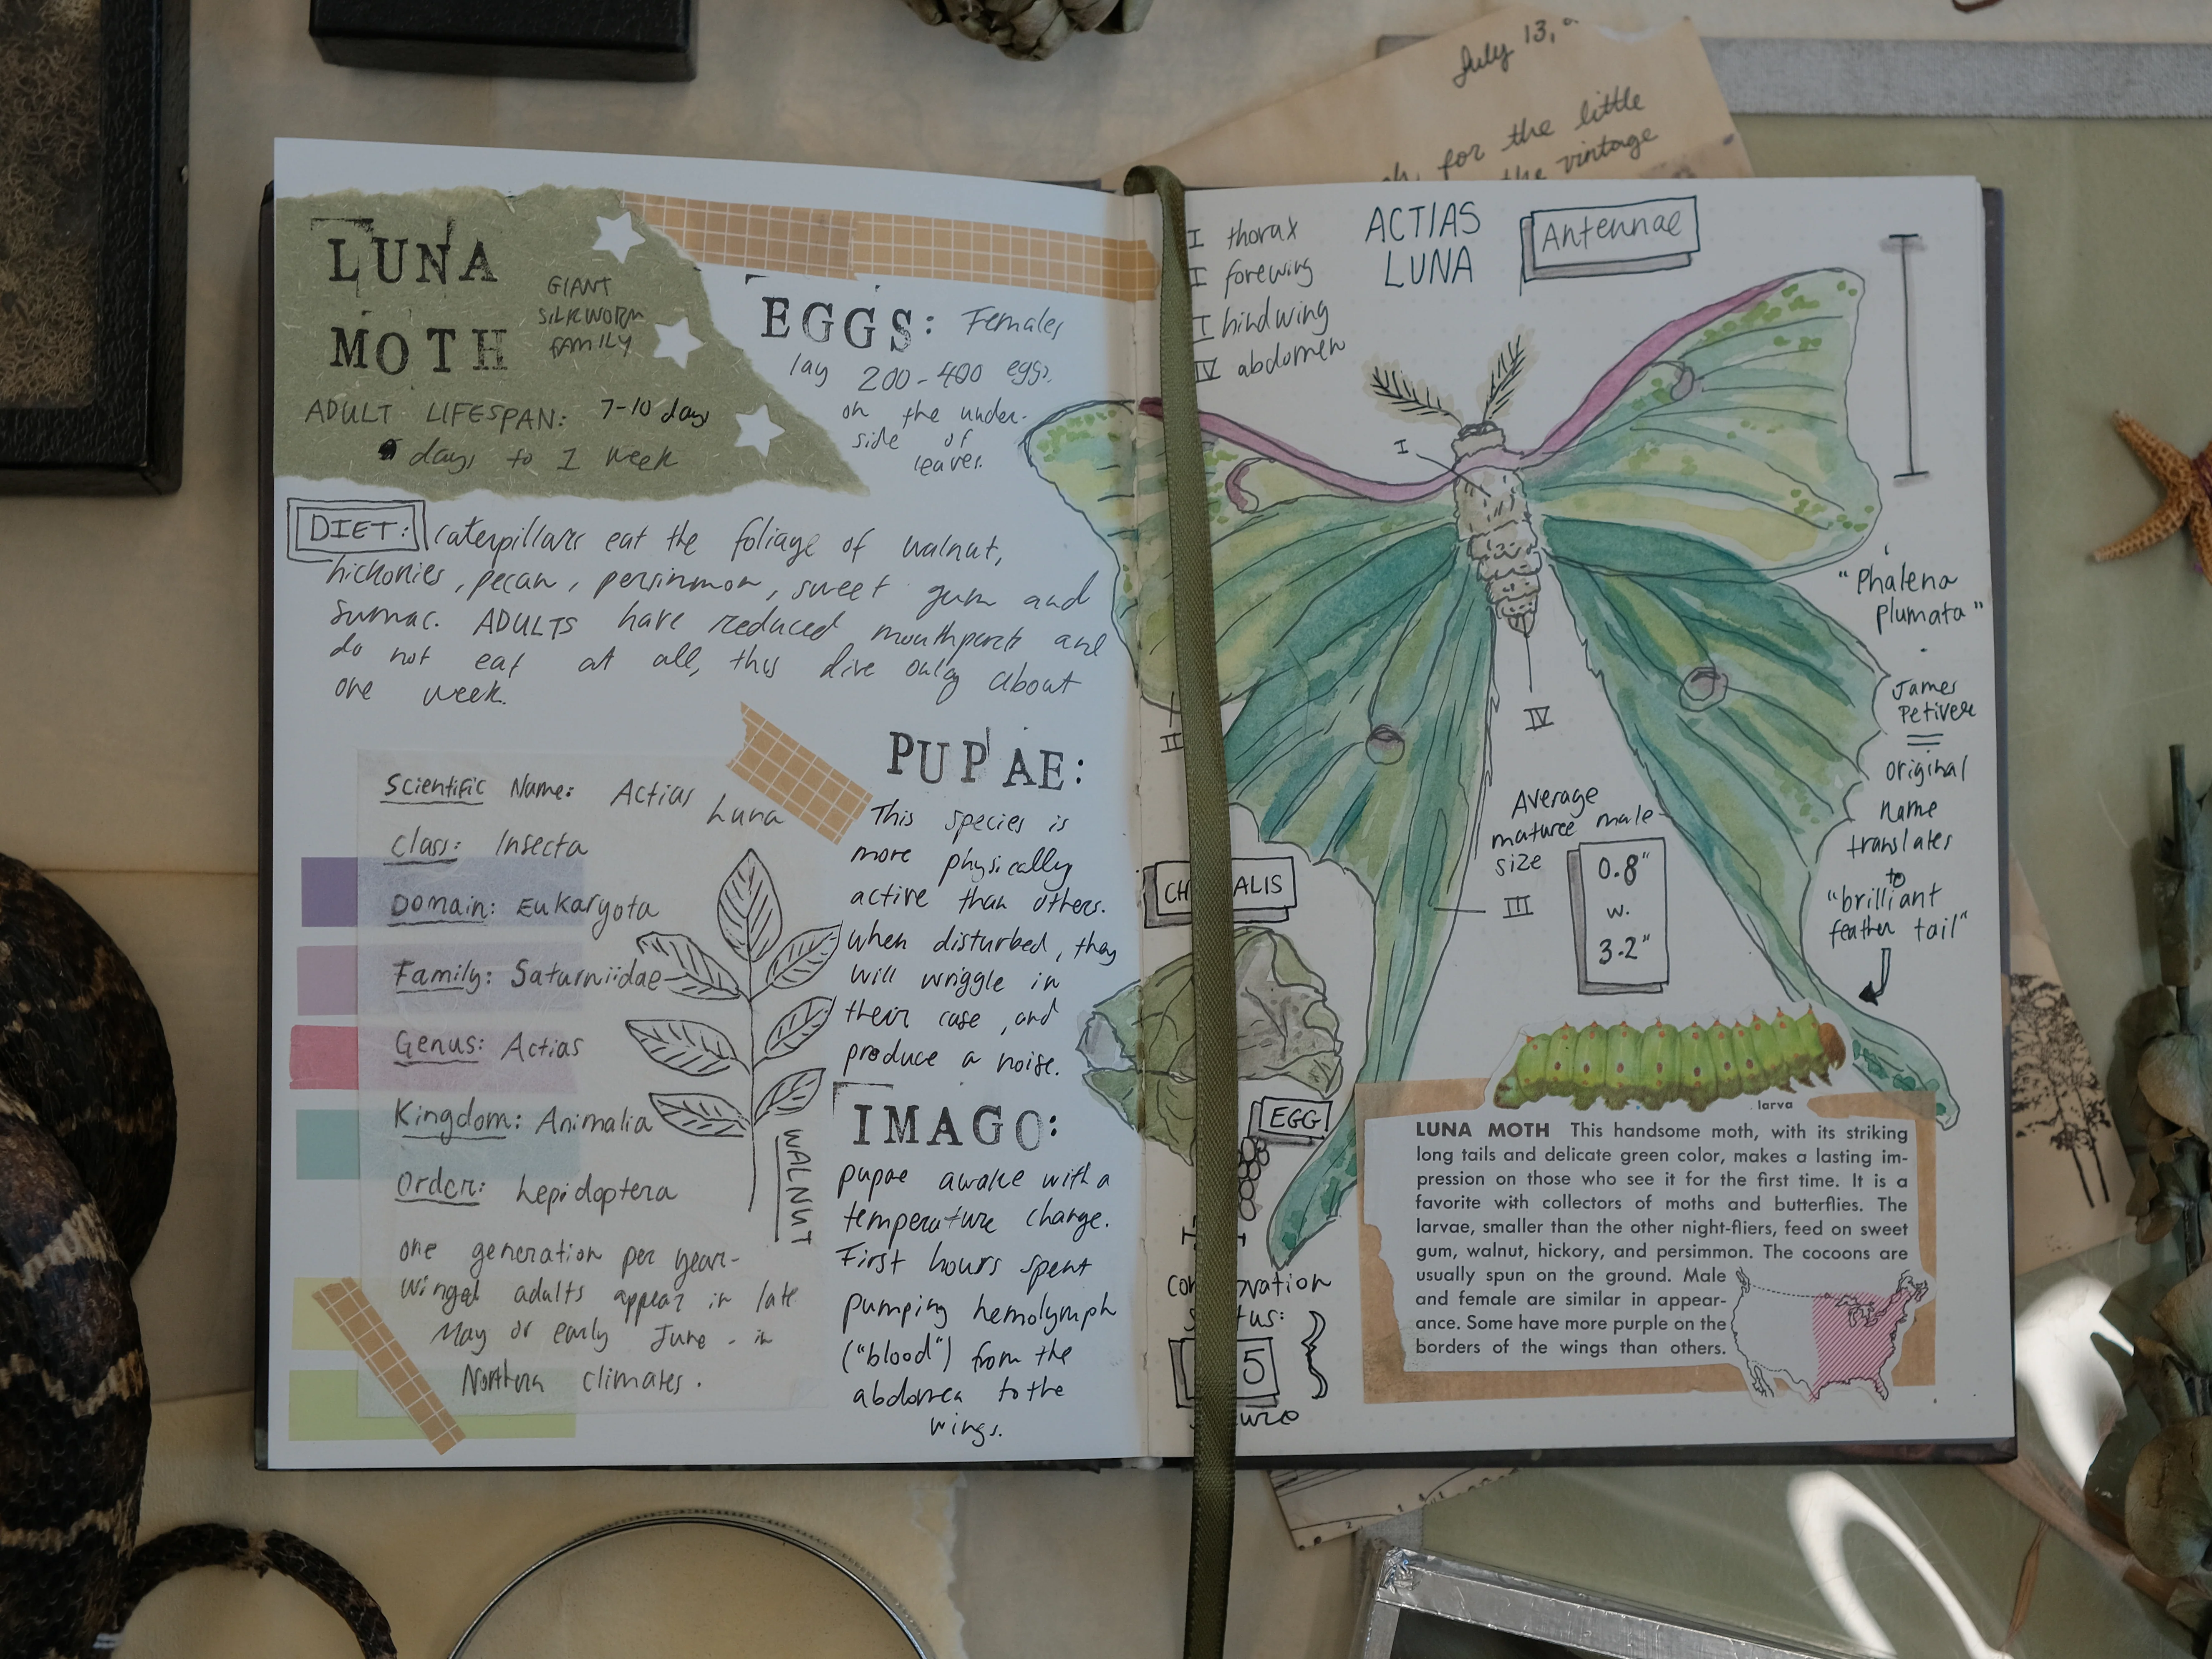 July 13,
for the little
the vintage
LUNA
MOTH
GIANT
SILKWORM
FAMILY
ADULT LIFESPAN: 7-10 days
days to 1 week
EGGS: Females
lay 200-400 eggs
on the under-
side of
leaves.
DIET: Caterpillars eat the foliage of walnut,
hickories, pecan, persimmon, sweet gum and
sumac. ADULTS have reduced mouthparts and
do not eat at all, thus live only about
one week.
Scientific Name: Actias
Luna
Class: Insecta
Domain: Eukaryota
Family: Saturniidae
Genus: Actias
Kingdom: Animalia
Order: Lepidoptera
one generation per year-
winged adults appear in late
May or early June - in
Northern climates.
WALNUT
PUPAE:
This species is
more physically
active than others.
when disturbed, they
will wriggle in
their case, and
produce a noise.
IMAGO:
pupae awake with a
temperature change.
First hours spent
pumping hemolymph
("blood") from the
abdomen to the
wings.
I thorax
I forewing
I hindwing
IV abdomen
ACTIAS
LUNA
Antennae
I
II
IV
III
"Phalena
plumata"
James
Petiver
original
name
translates
to
"brilliant
feather tail"
Average
mature male
size
0.8"
w.
3.2"
CH ALIS
EGG
con vation
s tus:
5
larva
LUNA MOTH This handsome moth, with its striking
long tails and delicate green color, makes a lasting im-
pression on those who see it for the first time. It is a
favorite with collectors of moths and butterflies. The
larvae, smaller than the other night-fliers, feed on sweet
gum, walnut, hickory, and persimmon. The cocoons are
usually spun on the ground. Male
and female are similar in appear-
ance. Some have more purple on the
borders of the wings than others.